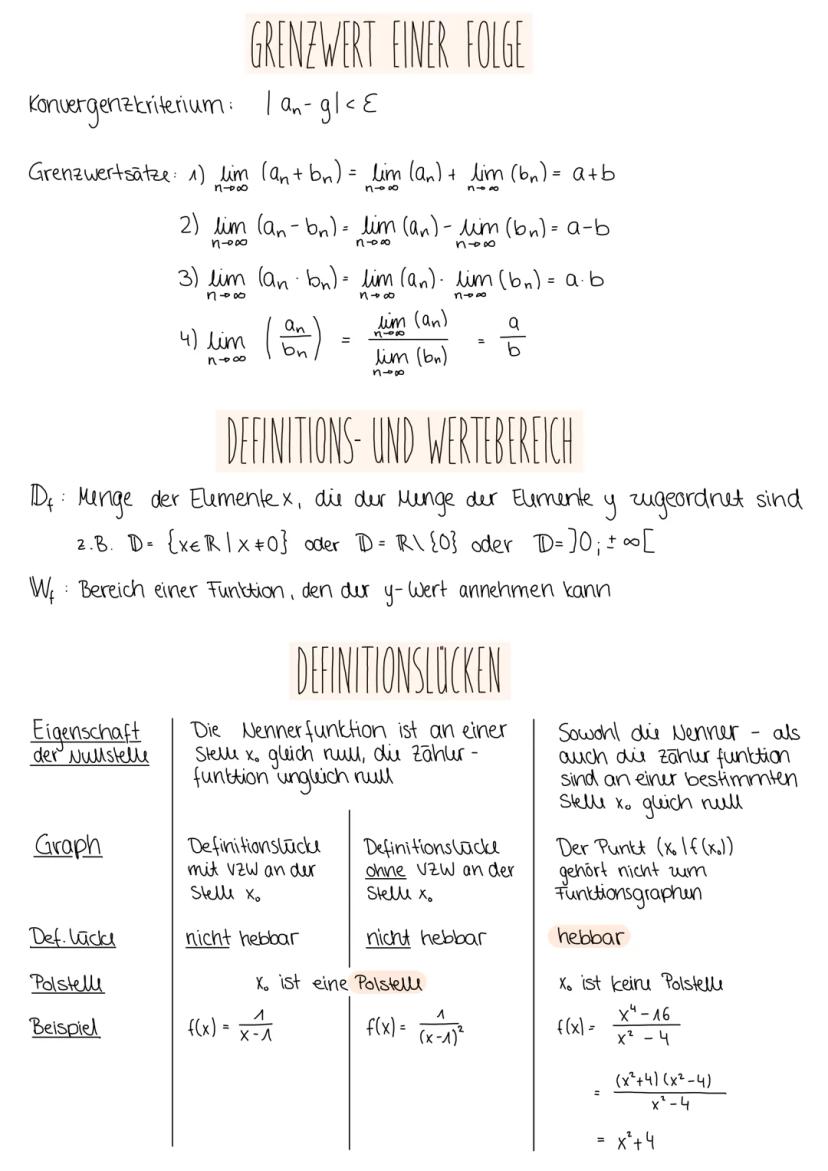 GRENZWERT EINER FOLGE
Konvergenzkriterium: | aₙ - g| < ε
Grenzwertsätze: 1) lim n→∞ (aₙ + bₙ) = lim n→∞ (aₙ) + lim n→∞ (bₙ) = a+b
2) lim n→∞ (aₙ - bₙ) = lim n→∞ (aₙ) - lim n→∞ (bₙ) = a-b
3) lim n→∞ (aₙ · bₙ) = lim n→∞ (aₙ) · lim n→∞ (bₙ) = a·b
4) lim n→∞ (aₙ / bₙ) = lim n→∞ (aₙ) / lim n→∞ (bₙ) = a / b
DEFINITIONS- UND WERTEBEREICH
𝔻f : Menge der Elemente x, die der Menge der Elemente y zugeordnet sind
z.B. 𝔻 = {x∈ℝ | x ≠ 0} oder 𝔻 = ℝ\{0} oder 𝔻 = ]0; ± ∞[
𝕎f : Bereich einer Funktion, den der y-Wert annehmen kann
DEFINITIONSLÜCKEN
Eigenschaft
der Nullstelle
Die Nennerfunktion ist an einer
Stelle x₀ gleich null, die Zähler-
funktion ungleich null
Sowohl die Nenner - als
auch die Zähler funktion
sind an einer bestimmten
Stelle x₀ gleich null
Graph
Definitionslücke
mit VZW an der
Stelle x₀
Definitionslücke
ohne VZW an der
Stelle x₀
Der Punkt (x₀ | f(x₀))
gehört nicht zum
Funktionsgraphen
Def. lücke
nicht hebbar
nicht hebbar
hebbar
Polstelle
x₀ ist eine Polstelle
x₀ ist keine Polstelle
Beispiel
f(x) = 1 / x-1
f(x) = 1 / (x-1)²
f(x) = x⁴-16 / x² - 4
= (x²+4) (x²-4) / x²-4
= x²+4